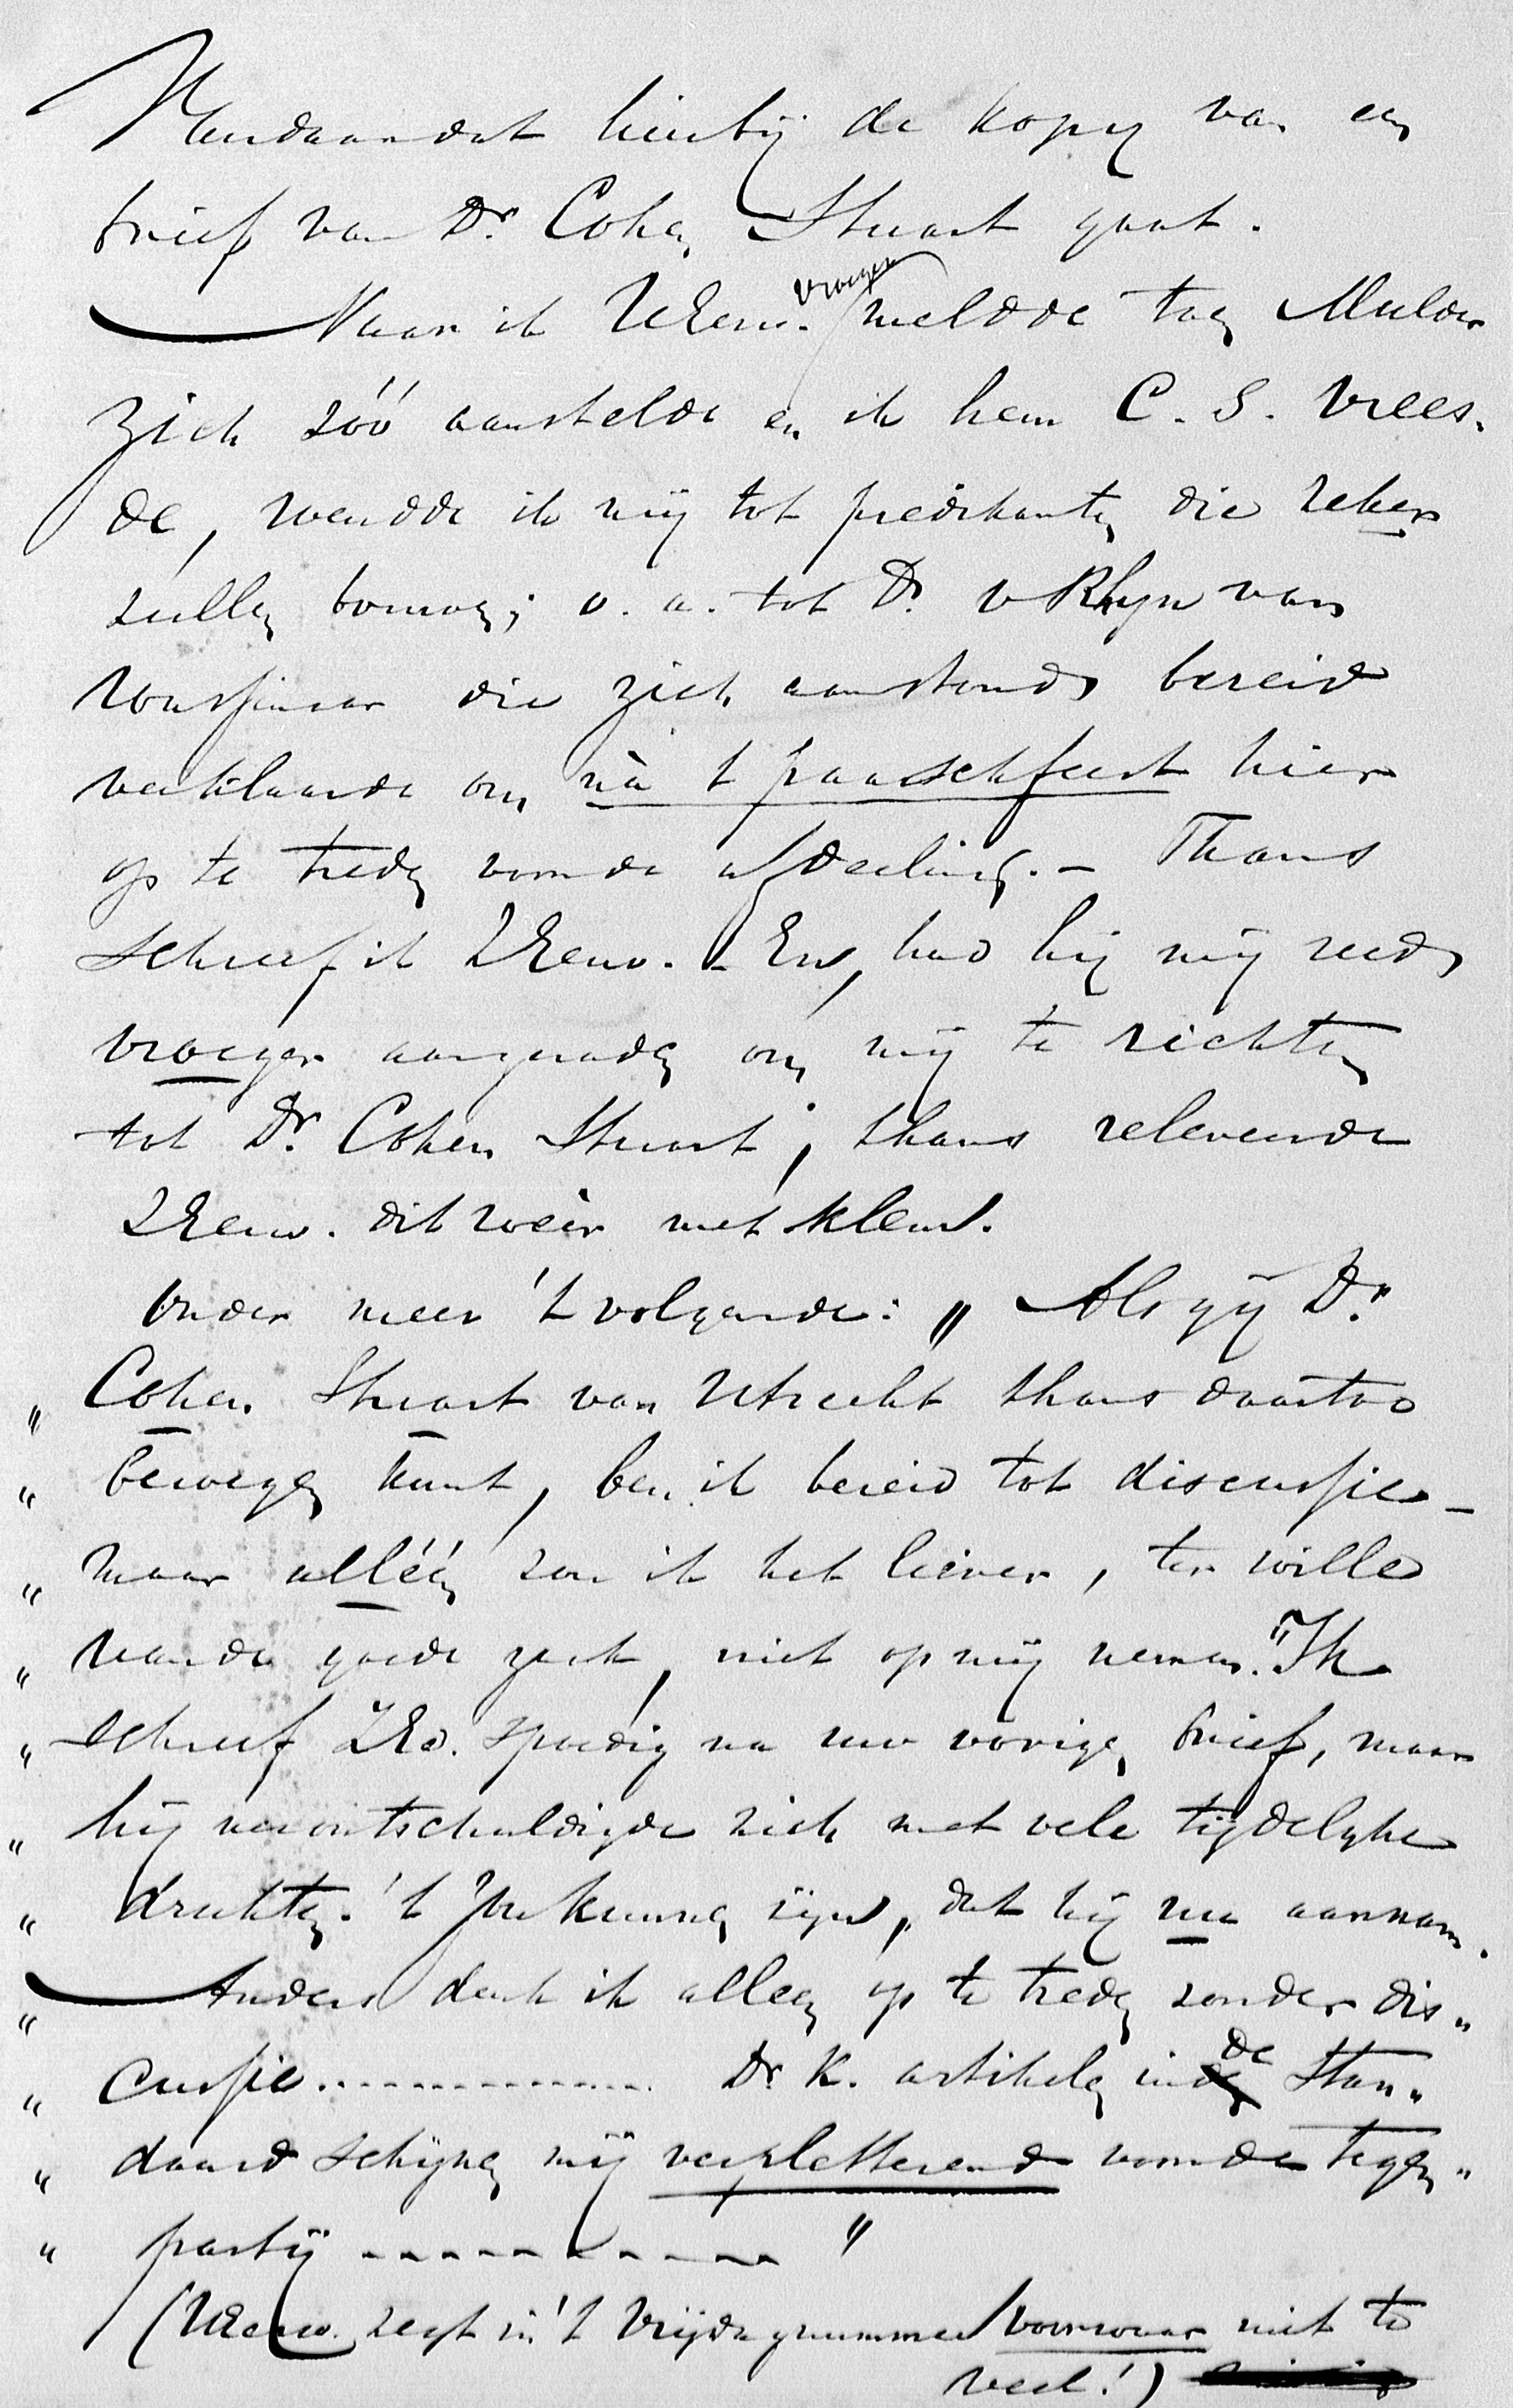 Vandaar dat hierbij de kopy van een
brief van Dr. Cohen Stuart gaat.
Naar ik UEerw. vroeger meldde toen Mulder
zich zóó aanstelde en ik hem C. S. vrees-
de, wendde ik mij tot predikanten die zeker
zullen komen; o. a. tot Dr. v Rhyn van
Wassenaar die zich aanstonds bereid
verklaarde om nà 't paaschfeest hier
op te treden voor de afdeeling. – Thans
schreef ik ZEerw. – En, had hij mij reeds
vroeger aangeraden om mij te richten
tot Dr. Cohen Stuart; thans releveerde
ZEerw. dit weêr met klem.
Onder meer 't volgende: „Als gij Dr.
„ Cohen Stuart van Utrecht thans daartoe
„ bewegen kunt, ben ik bereid tot discussie –
„ maar alléén zou ik het liever, ter wille
„ van de goede zaak, niet op mij nemen." Ik
„ schreef ZEd. spoedig na uw vorigen brief, maar
„ hij verontschuldigde zich met vele tijdelyke
„ drukten. 't Zou kunnen zijn, dat hij nu aannam.
„ Anders denk ik alleen op te treden zonder dis„
„ cussie............. Dr. K. artikelen in de Stan„
„ daard schijnen mij verpletterend voor de tegen„
„ partij - - - - - - - - - - "
(UEerw. zegt in 't Vrijdagnummer voorwaar niet te
veel!)